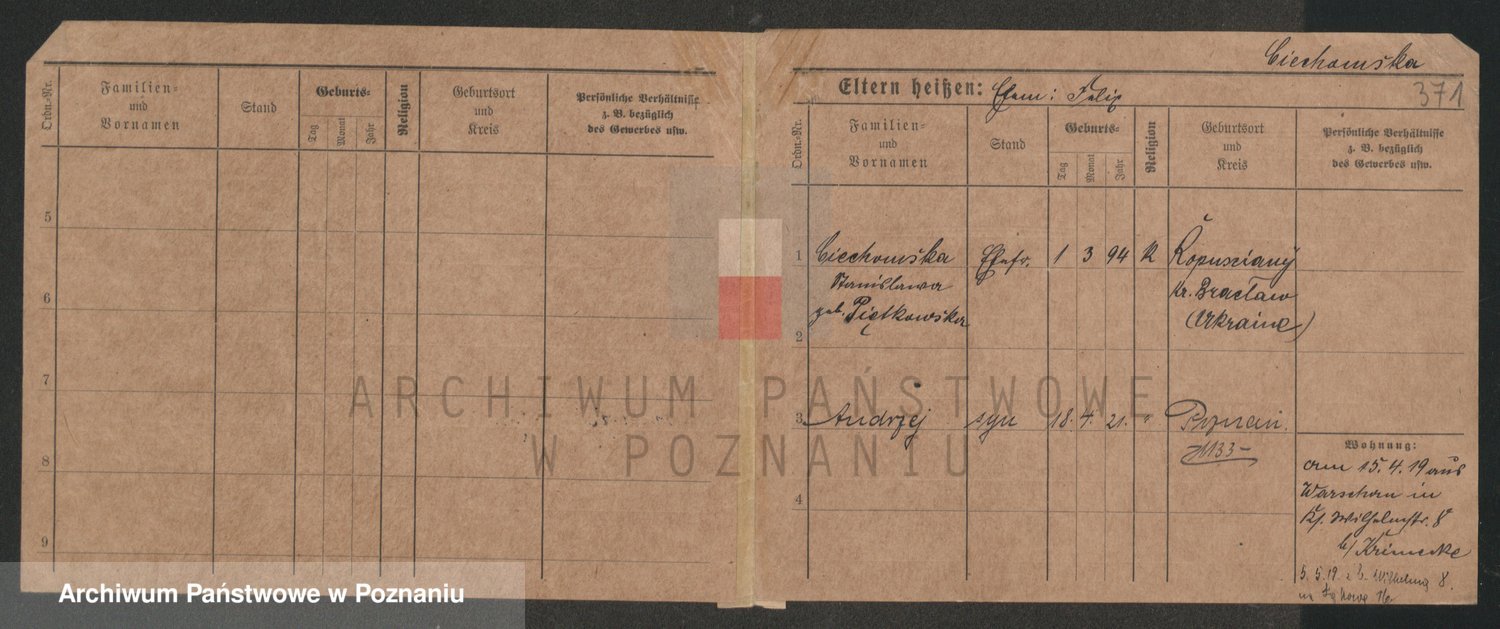 Ordn.-Nr.
Familien-
und
Vornamen
Stand
Geburts-
Tag
Monat
Jahr
Religion
Geburtsort
und
Kreis
Persönliche Verhältnisse
z. B. bezüglich
des Gewerbes usw.
5
6
7
8
9
Ciechomska
371
Eltern heißen:
Ordn.-Nr.
Familien-
und
Vornamen
Stand
Geburts-
Tag
Monat
Jahr
Religion
Geburtsort
und
Kreis
Persönliche Verhältnisse
z. B. bezüglich
des Gewerbes usw.
1 Ciechomska Ehefr. 1 3 94 K Kopusziany
Stanislawa Kr. Bracław
geb. Piętkowska (Ukraine)
2
3 Andrzej syn 18. 4. 21. " Poznań.
4
Wohnung:
am 15.4.19 aus
Warschau in
Kl. Wilhelmstr. 8
b/
5.5.19 8.
ARCHIWUM PAŃSTWOWE
W POZNANIU
Archiwum Państwowe w Poznaniu